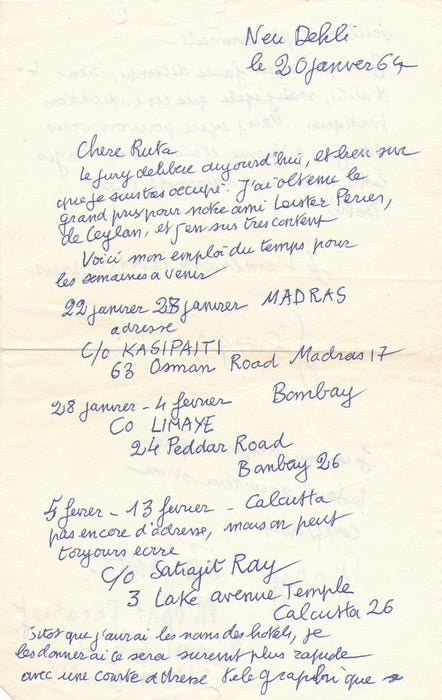 New Dehli
le 20 janvier 64
Chere Ruta
le jury delibere aujourd'hui, et bien sur
que je suis tres occupé. J'ai obtenu le
grand prix pour notre ami Lester Peries,
de Ceylan, et j'en suis tres content
Voici mon emploi du temps pour
les semaines à venir
22 janvier 28 janvier MADRAS
adresse
C/o KASIPAITI
63 Osman Road Madras 17
28 janvier - 4 fevrier Bombay
Co LIMAYE
24 Peddar Road
Bombay 26
5 fevrer - 13 fevrier - Calcutta
pas encore d'adresse, mais on peut
toujours ecrire
C/o Satiajit Ray
3 Lake avenue Temple
Calcutta 26
Sitot que j'aurai les noms des hotels, je
les donnerai ce sera surement plus rapide
avec une courte adresse telegraphique